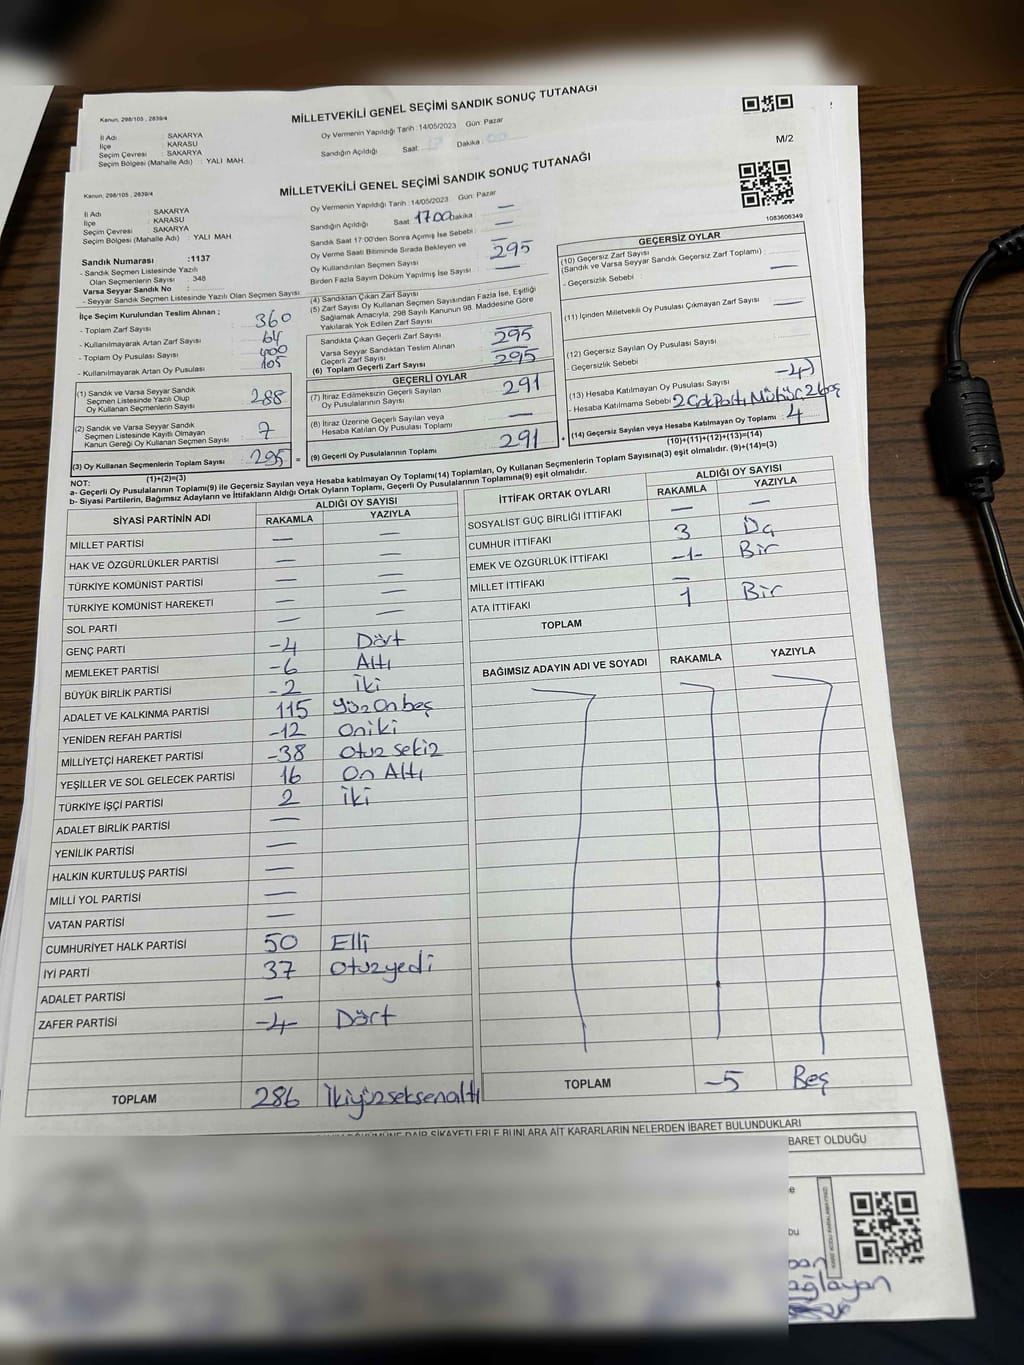 Kanun, 298/105 , 2839/4
MİLLETVEKİLİ GENEL SEÇİMİ SANDIK SONUÇ TUTANAĞI
İl Adı : SAKARYA
İlçe : KARASU
Seçim Çevresi : SAKARYA
Seçim Bölgesi (Mahalle Adı) : YALI MAH
Oy Vermenin Yapıldığı Tarih : 14/05/2023 Gün: Pazar
Sandığın Açıldığı Saat Dakika :
M/2
Kanun, 298/105 , 2839/4
MİLLETVEKİLİ GENEL SEÇİMİ SANDIK SONUÇ TUTANAĞI
1083606349
İl Adı : SAKARYA
İlçe : KARASU
Seçim Çevresi : SAKARYA
Seçim Bölgesi (Mahalle Adı) : YALI MAH
Sandık Numarası :1137
- Sandık Seçmen Listesinde Yazılı
Olan Seçmenlerin Sayısı : 348
Varsa Seyyar Sandık No :
- Seyyar Sandık Seçmen Listesinde Yazılı Olan Seçmen Sayısı:
Oy Vermenin Yapıldığı Tarih : 14/05/2023 Gün: Pazar
Sandığın Açıldığı Saat: 17.00 Dakika : —
Sandık Saat 17:00'den Sonra Açılmış İse Sebebi : —
Oy Verme Saati Bitiminde Sırada Bekleyen ve —
Oy Kullandırılan Seçmen Sayısı 295
Birden Fazla Sayım Döküm Yapılmış İse Sayısı —
İlçe Seçim Kurulundan Teslim Alınan ;
- Toplam Zarf Sayısı : 360
- Kullanılmayarak Artan Zarf Sayısı : 64
- Toplam Oy Pusulası Sayısı : 400
- Kullanılmayarak Artan Oy Pusulası : 105
(1) Sandık ve Varsa Seyyar Sandık
Seçmen Listesinde Yazılı Olup
Oy Kullanan Seçmenlerin Sayısı 288
(2) Sandık ve Varsa Seyyar Sandık
Seçmen Listesinde Kayıtlı Olmayan
Kanun Gereği Oy Kullanan Seçmen Sayısı 7
(3) Oy Kullanan Seçmenlerin Toplam Sayısı 295 =
(1)+(2)=(3)
(4) Sandıktan Çıkan Zarf Sayısı
(5) Zarf Sayısı Oy Kullanan Seçmen Sayısından Fazla İse, Eşitliği
Sağlamak Amacıyla, 298 Sayılı Kanunun 98. Maddesine Göre
Yakılarak Yok Edilen Zarf Sayısı
Sandıkta Çıkan Geçerli Zarf Sayısı 295
Varsa Seyyar Sandıktan Teslim Alınan
Geçerli Zarf Sayısı
(6) Toplam Geçerli Zarf Sayısı 295
GEÇERLİ OYLAR
(7) İtiraz Edilmeksizin Geçerli Sayılan
Oy Pusulalarının Sayısı 291
(8) İtiraz Üzerine Geçerli Sayılan veya
Hesaba Katılan Oy Pusulası Toplamı —
(9) Geçerli Oy Pusulalarının Toplamı 291 +
GEÇERSİZ OYLAR
(10) Geçersiz Zarf Sayısı
(Sandık ve Varsa Seyyar Sandık Geçersiz Zarf Toplamı) :
- Geçersizlik Sebebi : —
(11) İçinden Milletvekili Oy Pusulası Çıkmayan Zarf Sayısı : —
(12) Geçersiz Sayılan Oy Pusulası Sayısı
- Geçersizlik Sebebi
(13) Hesaba Katılmayan Oy Pusulası Sayısı -4
- Hesaba Katılmama Sebebi 2 Çok Parti Mühür, 2 boş
(14) Geçersiz Sayılan veya Hesaba Katılmayan Oy Toplamı : 4
(10)+(11)+(12)+(13)=(14)
NOT:
a- Geçerli Oy Pusulalarının Toplamı(9) ile Geçersiz Sayılan veya Hesaba katılmayan Oy Toplamı(14) Toplamları, Oy Kullanan Seçmenlerin Toplam Sayısına(3) eşit olmalıdır. (9)+(14)=(3)
b- Siyasi Partilerin, Bağımsız Adayların ve İttifakların Aldığı Ortak Oyların Toplamı, Geçerli Oy Pusulalarının Toplamına(9) eşit olmalıdır.
SİYASİ PARTİNİN ADI ALDIĞI OY SAYISI
RAKAMLA YAZIYLA
MİLLET PARTİSİ — —
HAK VE ÖZGÜRLÜKLER PARTİSİ — —
TÜRKİYE KOMÜNİST PARTİSİ — —
TÜRKİYE KOMÜNİST HAREKETİ — —
SOL PARTİ — —
GENÇ PARTİ -4 Dört
MEMLEKET PARTİSİ -6 Altı
BÜYÜK BİRLİK PARTİSİ -2 İki
ADALET VE KALKINMA PARTİSİ 115 Yüz On beş
YENİDEN REFAH PARTİSİ -12 Oniki
MİLLİYETÇİ HAREKET PARTİSİ -38 Otuz sekiz
YEŞİLLER VE SOL GELECEK PARTİSİ 16 On Altı
TÜRKİYE İŞÇİ PARTİSİ 2 iki
ADALET BİRLİK PARTİSİ —
YENİLİK PARTİSİ —
HALKIN KURTULUŞ PARTİSİ —
MİLLİ YOL PARTİSİ —
VATAN PARTİSİ —
CUMHURİYET HALK PARTİSİ 50 Elli
İYİ PARTİ 37 Otuzyedi
ADALET PARTİSİ —
ZAFER PARTİSİ -4- Dört
TOPLAM 286 İkiyüzseksenaltı
İTTİFAK ORTAK OYLARI ALDIĞI OY SAYISI
RAKAMLA YAZIYLA
SOSYALİST GÜÇ BİRLİĞİ İTTİFAKI — —
CUMHUR İTTİFAKI 3 Üç
EMEK VE ÖZGÜRLÜK İTTİFAKI -1- Bir
MİLLET İTTİFAKI —
ATA İTTİFAKI 1 Bir
TOPLAM
BAĞIMSIZ ADAYIN ADI VE SOYADI RAKAMLA YAZIYLA
TOPLAM -5 Beş
DAİR ŞİKAYETLERLE BUNLARA AİT KARARLARIN NELERDEN İBARET BULUNDUKLARI
BARET OLDUĞU